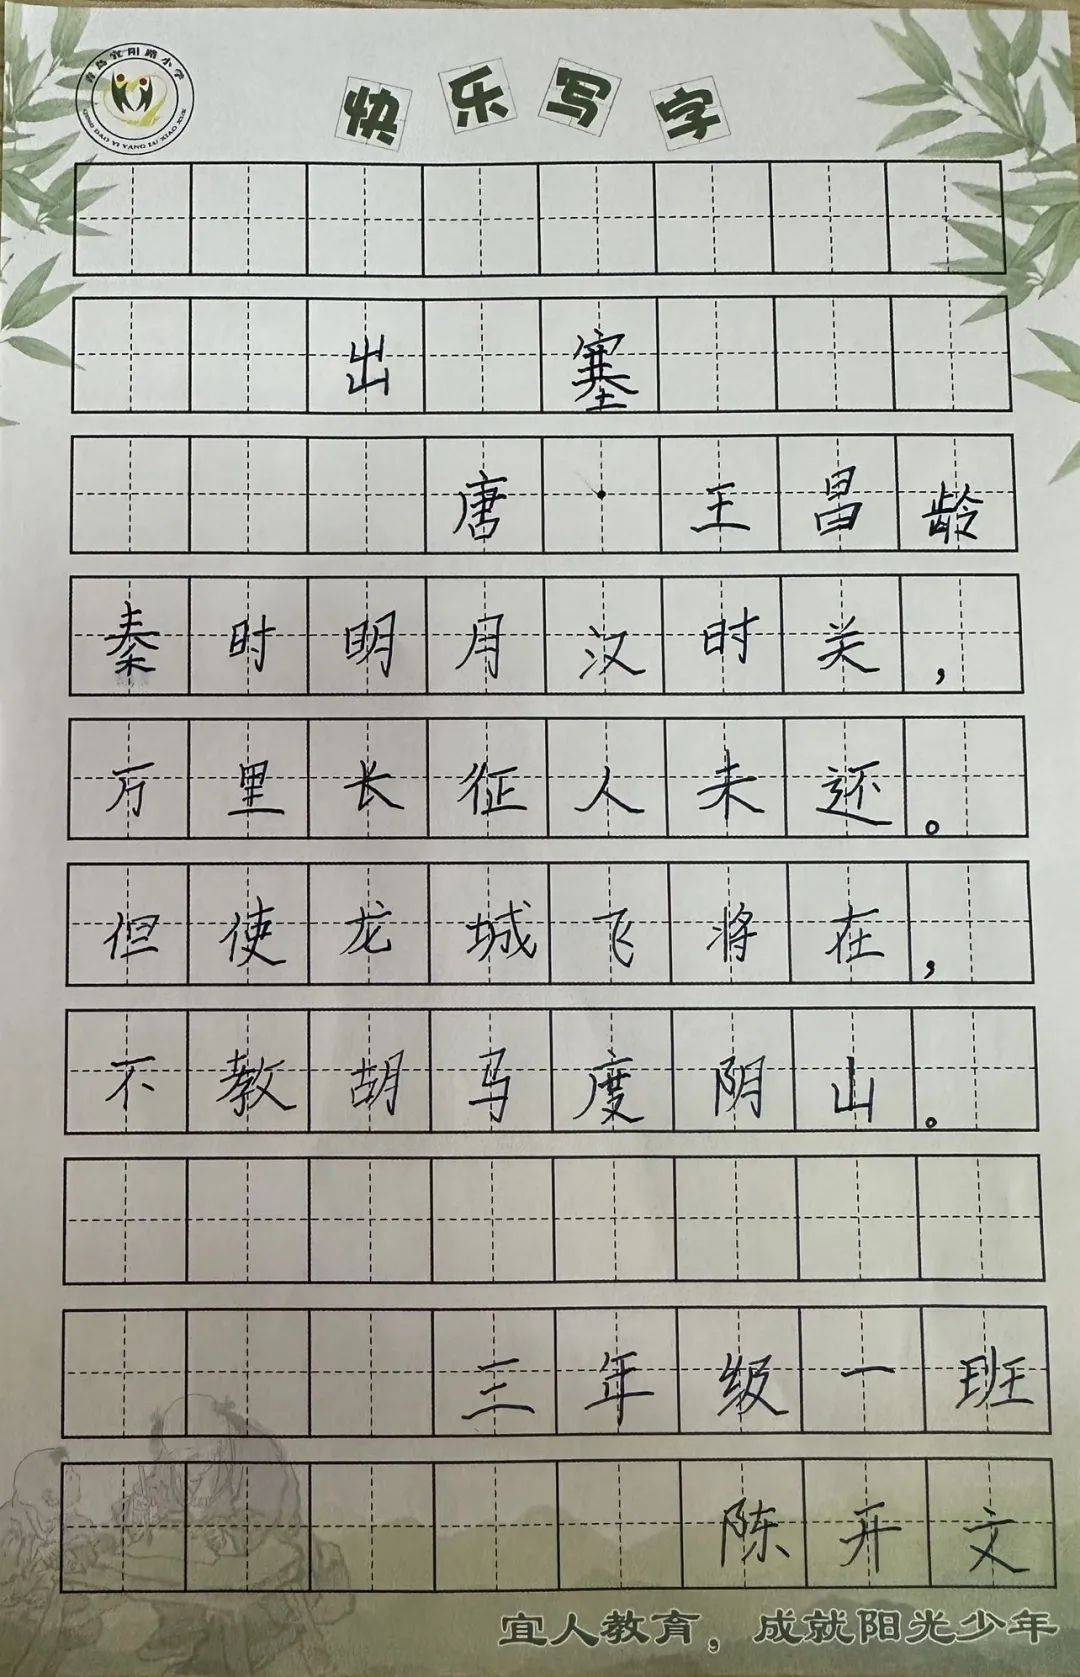 青岛宜阳路小学
QING DAO YI YANG LU XIAO XUE
快乐写字
出塞
唐·王昌龄
秦时明月汉时关，
万里长征人未还。
但使龙城飞将在，
不教胡马度阴山。
三年级一班
陈开文
宜人教育，成就阳光少年